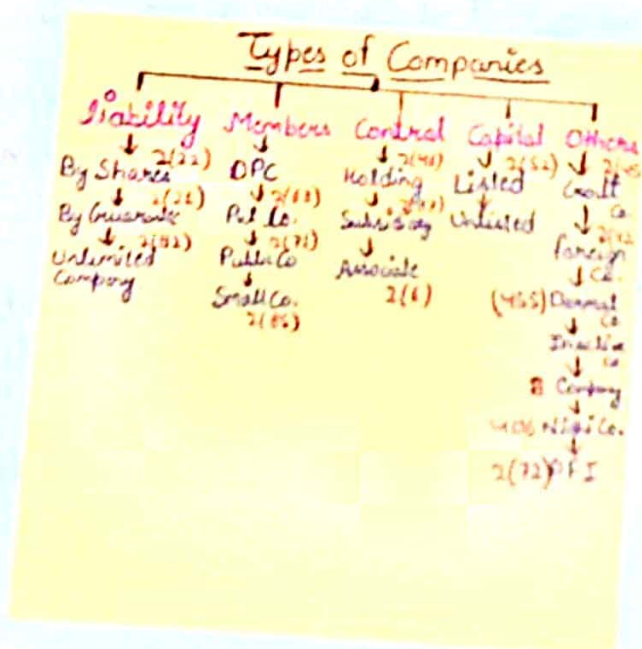 Types of Companies
Liability
By Shares 2(22)
By Guarantee 2(21)
Unlimited 2(92)
Company
Members
OPC
2(68)
Pvt Co.
2(71)
Public Co
Small Co.
2(85)
Control
Holding
Subsidiary
Associate
2(6)
Capital
2(52)
Listed
Unlisted
Others
Govt
Co.
Foreign
Co.
(455) Dormant
Co
Inactive
Co
8 Company
406 Nidhi Co.
2(72) PFI